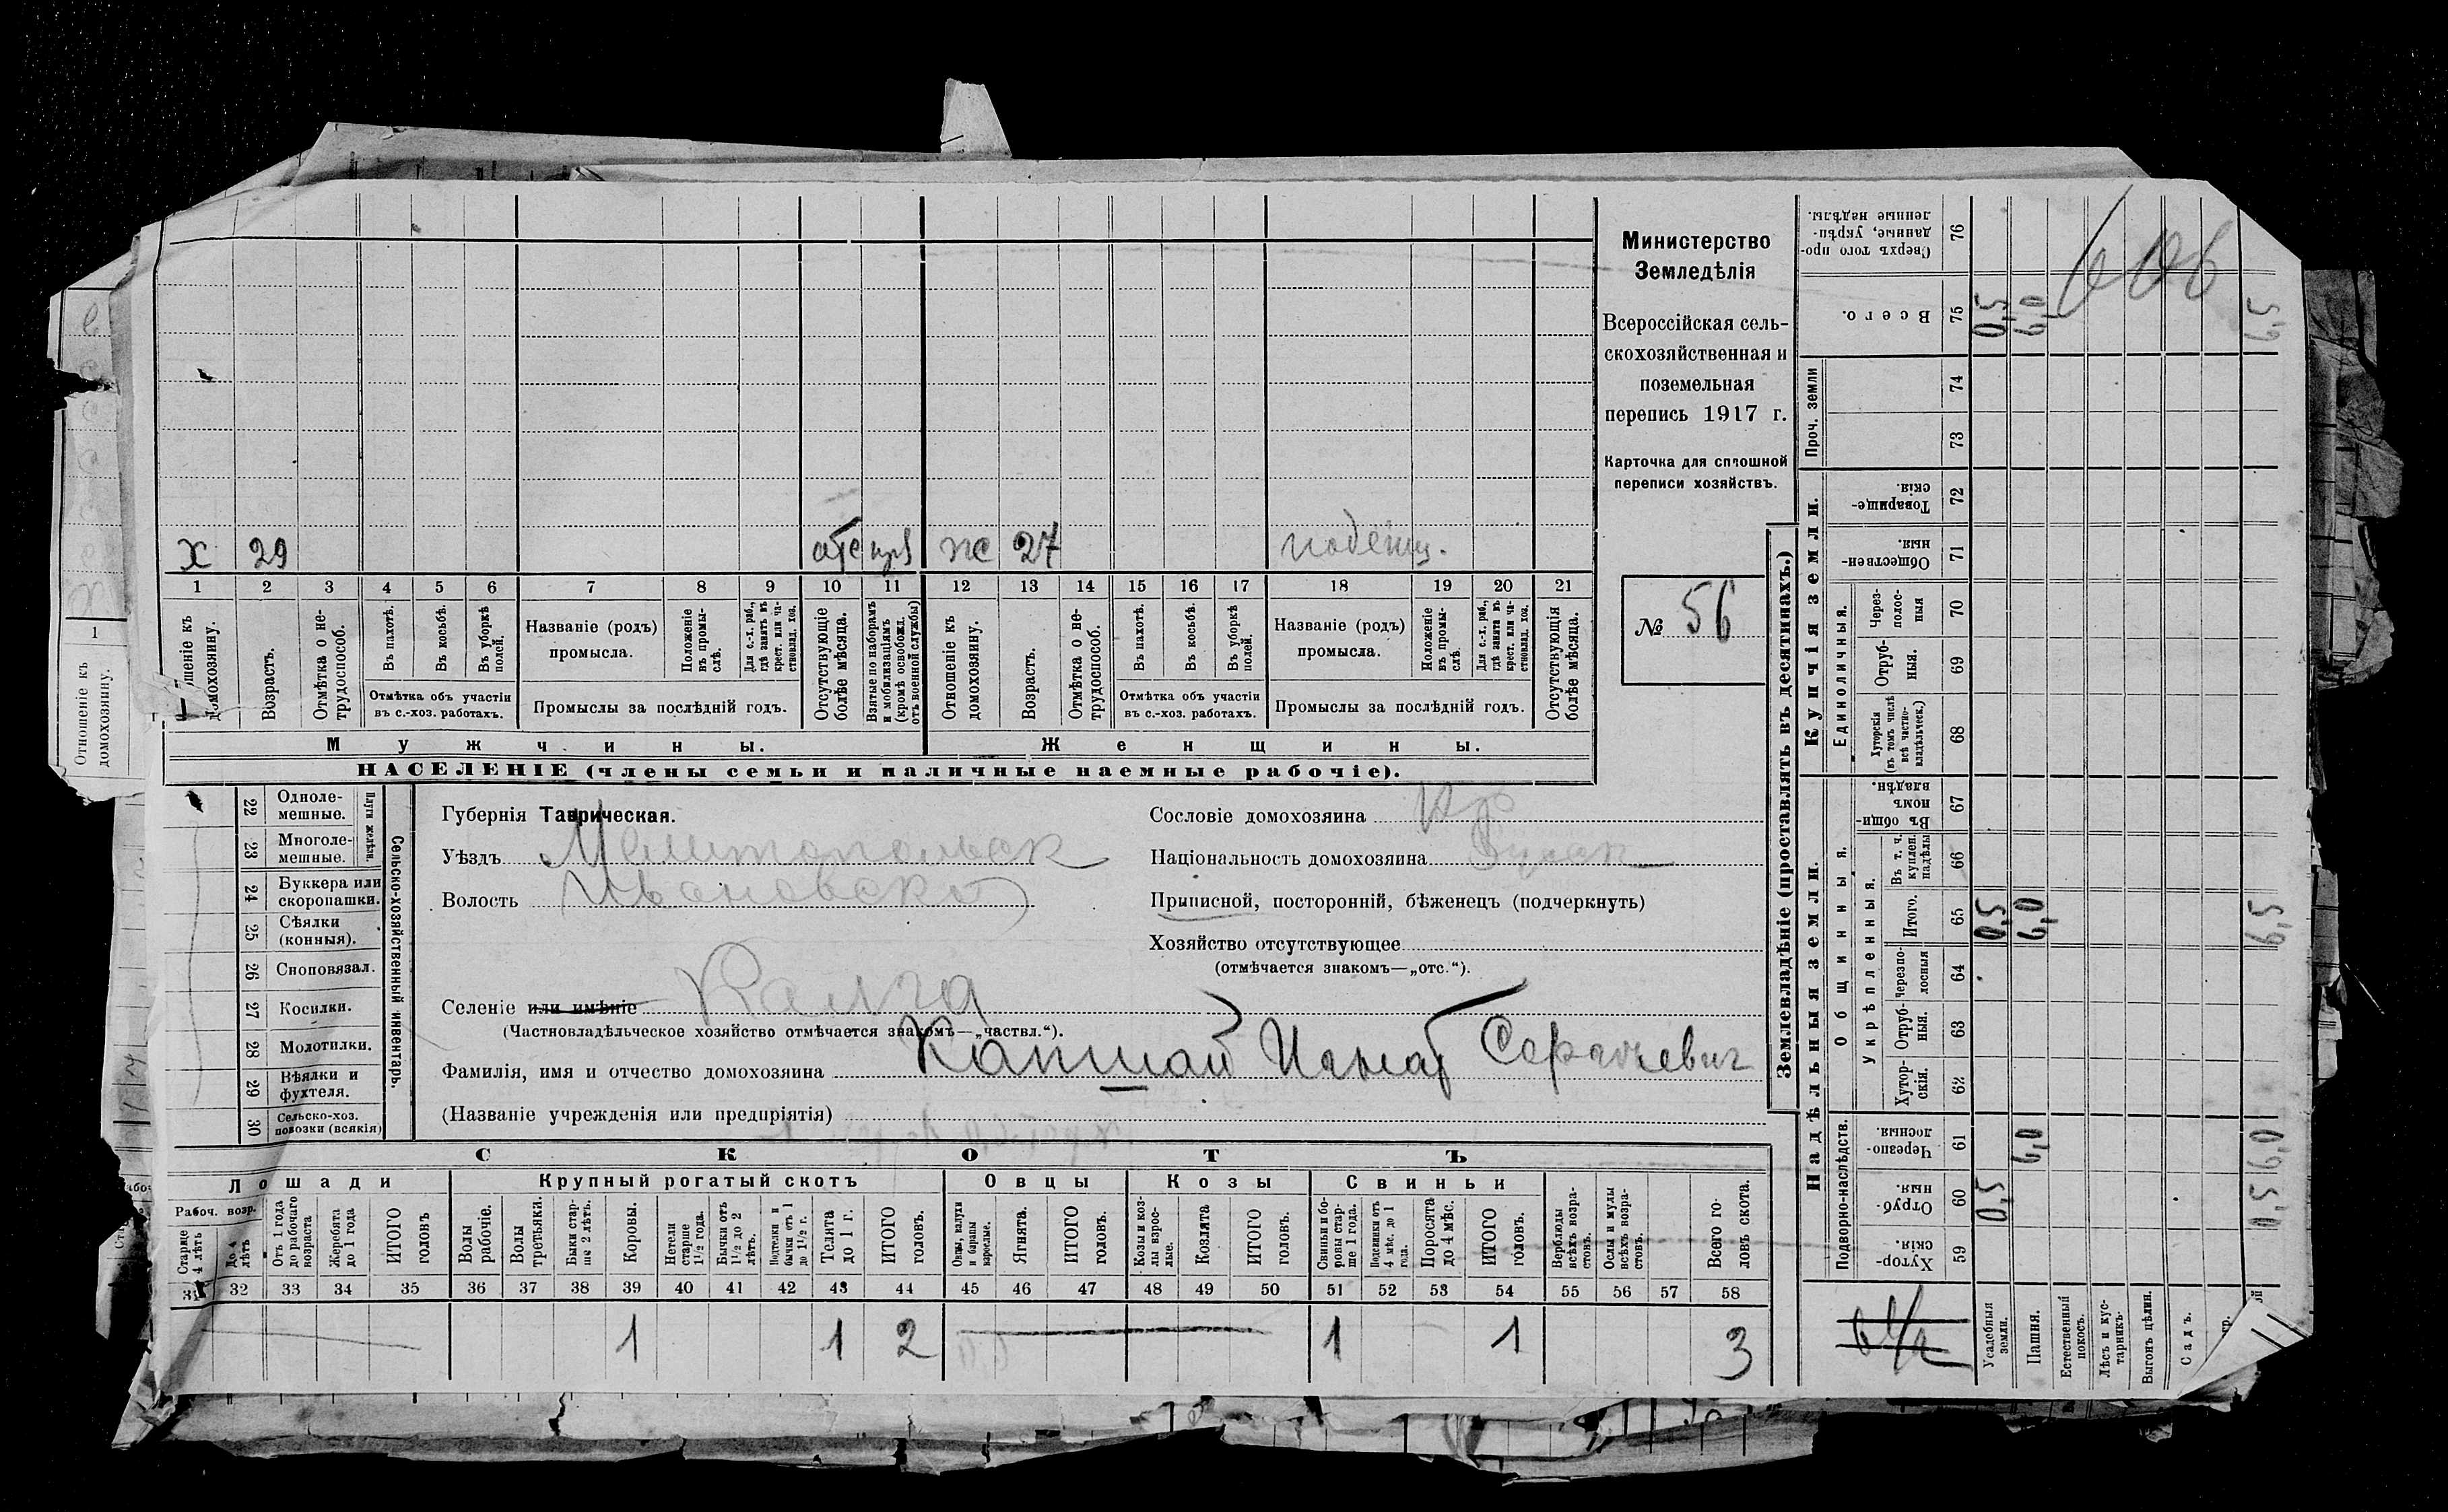 Министерство
Земледѣлія
Всероссійская сель-
скохозяйственная и
поземельная
перепись 1917 г.
Карточка для сплошной
переписи хозяйствъ.
№ 56
х 29 отс жс 27 поденщ.
1 2 3 4 5 6 7 8 9 10 11 12 13 14 15 16 17 18 19 20 21
домохозяину.
Возрастъ.
Отмѣтка о не-
трудоспособ.
Въ пахотѣ.
Въ косьбѣ.
Въ уборкѣ
полей.
Отмѣтка объ участіи
въ с.-хоз. работахъ.
Названіе (родъ)
промысла.
Положеніе
въ промы-
слѣ.
Для с.-х. раб.,
гдѣ занятъ въ
крест. или ча-
стновлад. хоз.
Промыслы за послѣдній годъ.
Отсутствующіе
болѣе мѣсяца.
Взятые по наборамъ
и мобилизаціямъ
(кромѣ освобожд.
отъ военной службы)
Отношеніе къ
домохозяину.
Возрастъ.
Отмѣтка о не-
трудоспособ.
Въ пахотѣ.
Въ косьбѣ.
Въ уборкѣ
полей.
Отмѣтка объ участіи
въ с.-хоз. работахъ.
Названіе (родъ)
промысла.
Положеніе
въ промы-
слѣ.
Для с.-х. раб.,
гдѣ занята въ
крест. или ча-
стновлад. хоз.
Промыслы за послѣдній годъ.
Отсутствующія
болѣе мѣсяца.
Мужчины.
Женщины.
НАСЕЛЕНІЕ (члены семьи и наличные наемные рабочіе).
Сельско-хозяйственный инвентарь.
Плуги желѣзн.
22 Одноле-
мешные.
23 Многоле-
мешные.
24 Буккера или
скоропашки.
25 Сѣялки
(конныя).
26 Сноповязал.
27 Косилки.
28 Молотилки.
29 Вѣялки и
фухтеля.
30 Сельско-хоз.
повозки (всякія)
Губернія Таврическая.
Уѣздъ Мелитопольск
Волость Ивановской
Селеніе или имѣніе Калга
(Частновладѣльческое хозяйство отмѣчается знакомъ—„частвл.“).
Фамилія, имя и отчество домохозяина Капшай Игнат
(Названіе учрежденія или предпріятія)
Сословіе домохозяина кр
Національность домохозяина
Приписной, посторонній, бѣженецъ (подчеркнуть)
Хозяйство отсутствующее
(отмѣчается знакомъ—„отс.“).
СКОТЪ
Лошади
Рабоч. возр.
Старше
4 лѣтъ
До 4
лѣтъ
Отъ 1 года
до рабочаго
возраста
Жеребята
до 1 года
ИТОГО
головъ
Крупный рогатый скотъ
Волы
рабочіе.
Волы
третьяки.
Быки стар-
ше 2 лѣтъ.
Коровы.
Нетели
старше
1½ года.
Бычки отъ
1½ до 2
лѣтъ.
Подтелки и
бычки отъ 1
до 1½ г.
Телята
до 1 г.
ИТОГО
головъ.
Овцы
Овцы, валухи
и бараны
взрослые.
Ягнята.
ИТОГО
головъ.
Козы
Козы и коз-
лы взрос-
лые.
Козлята
ИТОГО
головъ.
Свиньи
Свиньи и бо-
ровы стар-
ше 1 года.
Подсвинки отъ
4 мѣс. до 1
года.
Поросята
до 4 мѣс.
ИТОГО
головъ.
Верблюды
всѣхъ возра-
стовъ.
Ослы и мулы
всѣхъ возра-
стовъ.
Всего го-
ловъ скота.
32 33 34 35 36 37 38 39 40 41 42 43 44 45 46 47 48 49 50 51 52 53 54 55 56 57 58
1 1 2 1 1 3
Землевладѣніе (проставлять въ десятинахъ.)
Надѣльныя земли.
Подворно-наслѣдств.
Хутор-
скія. 59
Отруб-
ныя. 60
Черезпо-
лосныя. 61
Общинныя.
Укрѣпленныя.
Хутор-
скія. 62
Отруб-
ныя. 63
Черезпо-
лосныя 64
Итого. 65
Въ т. ч.
куплен.
надѣлы 66
Въ общин-
номъ
владѣн. 67
Купчія земли.
Единоличныя.
Хуторскія
(въ томъ числѣ
всѣ частно-
владѣльческ.) 68
Отруб-
ныя. 69
Через-
полос-
ныя 70
Обществен-
ныя. 71
Товарище-
скія. 72
Проч. земли
73
74
Всего. 75
Сверхъ того про-
данные, укрѣп-
ленные надѣлы. 76
Усадебныя
земли. 0,5 0,5 0,5
Пашня. 6,0 6,0 6,0
Естественный
покосъ.
Лѣсъ и кус-
тарникъ.
Выгонъ цѣлин.
Садъ.
0,5 6,0 6,5 6,5
606
1
Отношеніе къ
домохозяину.